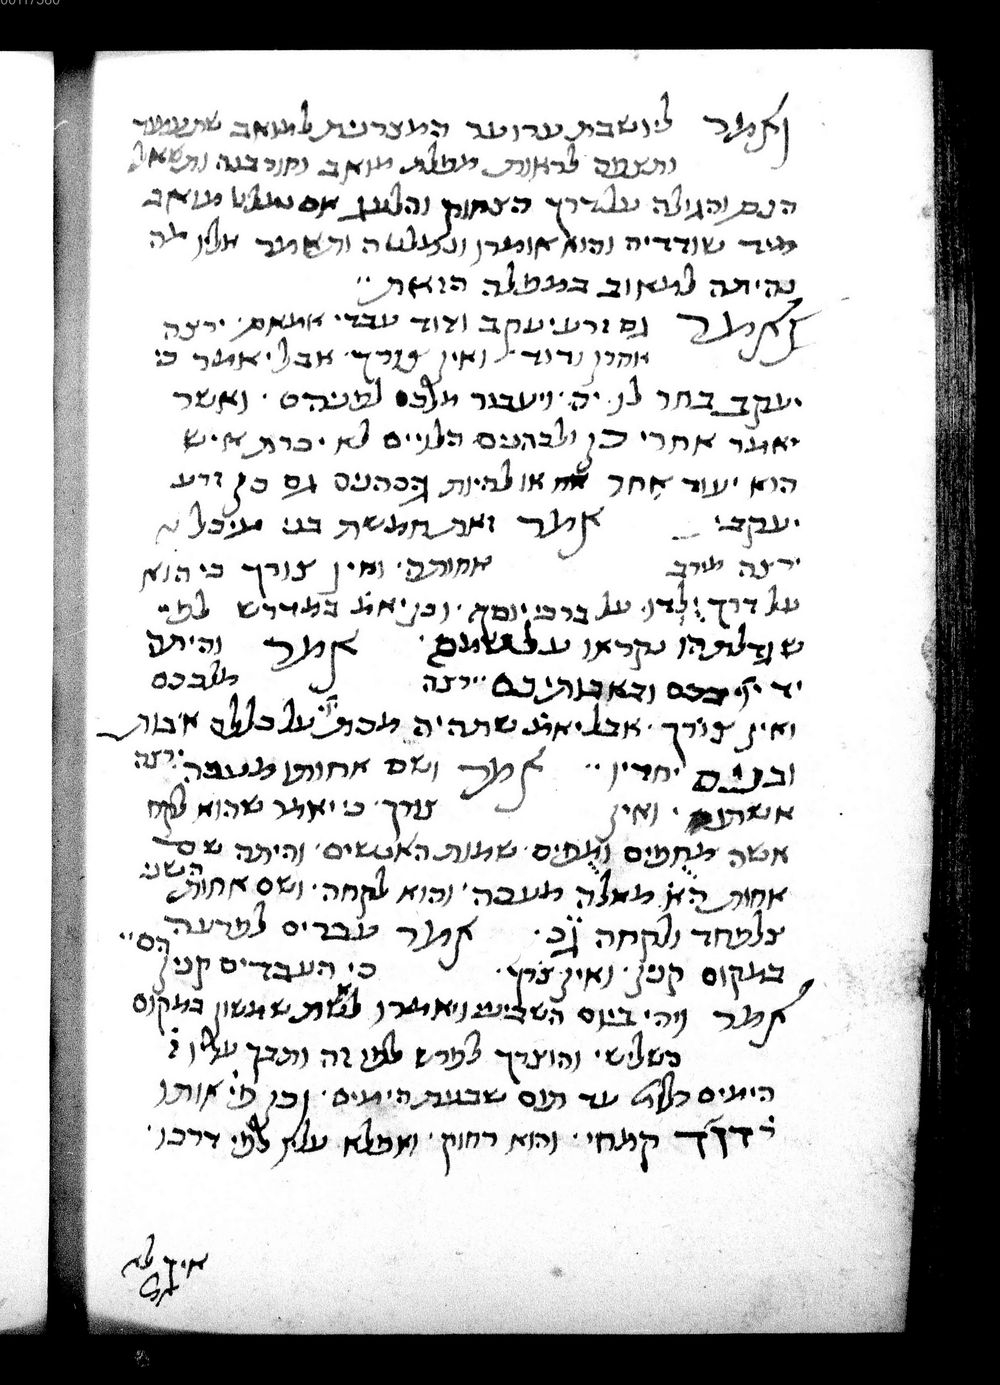 ואמר ליושבת ערוער המצרנית למואב שתעמוד
ותצפה לראות מפלת מואב וחורבנה ותשאל
הנס והגולה על דרך הצחוק והלעג אם נמלט מואב
מיד שודדיה והוא אומרו ונמלטה ותאמר אליו מה
נהיתה למואב במפלה הזאת
ואמר גם זרע יעקב ודוד עבדי אמאס ירצה
אהרן ודוד ואין צורך אבל יאמר כי
יעקב בחר לו יה ויעבור מלכם לפניהם ואשר
יאמר אחרי כן ולכהנים הלוים לא יכרת איש
הוא יעוד אחר או להיות הכהנים גם כן זרע
יעקב אמר ואת חמשת בני מיכל
ירצה מירב אחותה ואין צורך כי הוא
על דרך יולדו על ברכי יוסף וכן יאמ במדרש לפי
שגדלתהו נקראו על שמם אמר והיתה
יד יי בכם ובאבותיכם ירצה מלככם
ואין צורך אבל יאמ שתהיה מכת יי על כללם אבות
ובנים יחדיו אמר ושם אחותו מעכה ירצה
אשתו ואין צורך כי יאמר שהוא לקח
אשה מחפים ומפים שמות האנשים והיתה שם
אחות הא מאלה מעכה והוא לקחה ושם אחות השני
צלפחד ולקחה גכ אמר עברים למרעה
במקום קנין ואין צרך כי העבדים קנין הם
אמר ויהי ביום השביעי ויאמרו לאשת שמשון במקום
השלישי והוצרך לפרש לפי זה ותבך עליו ז
הימים כלל עד תום שבעת הימים וכן פי אותו
ר דוד קמחי והוא רחוק ואמלא עלא לפי דרכו